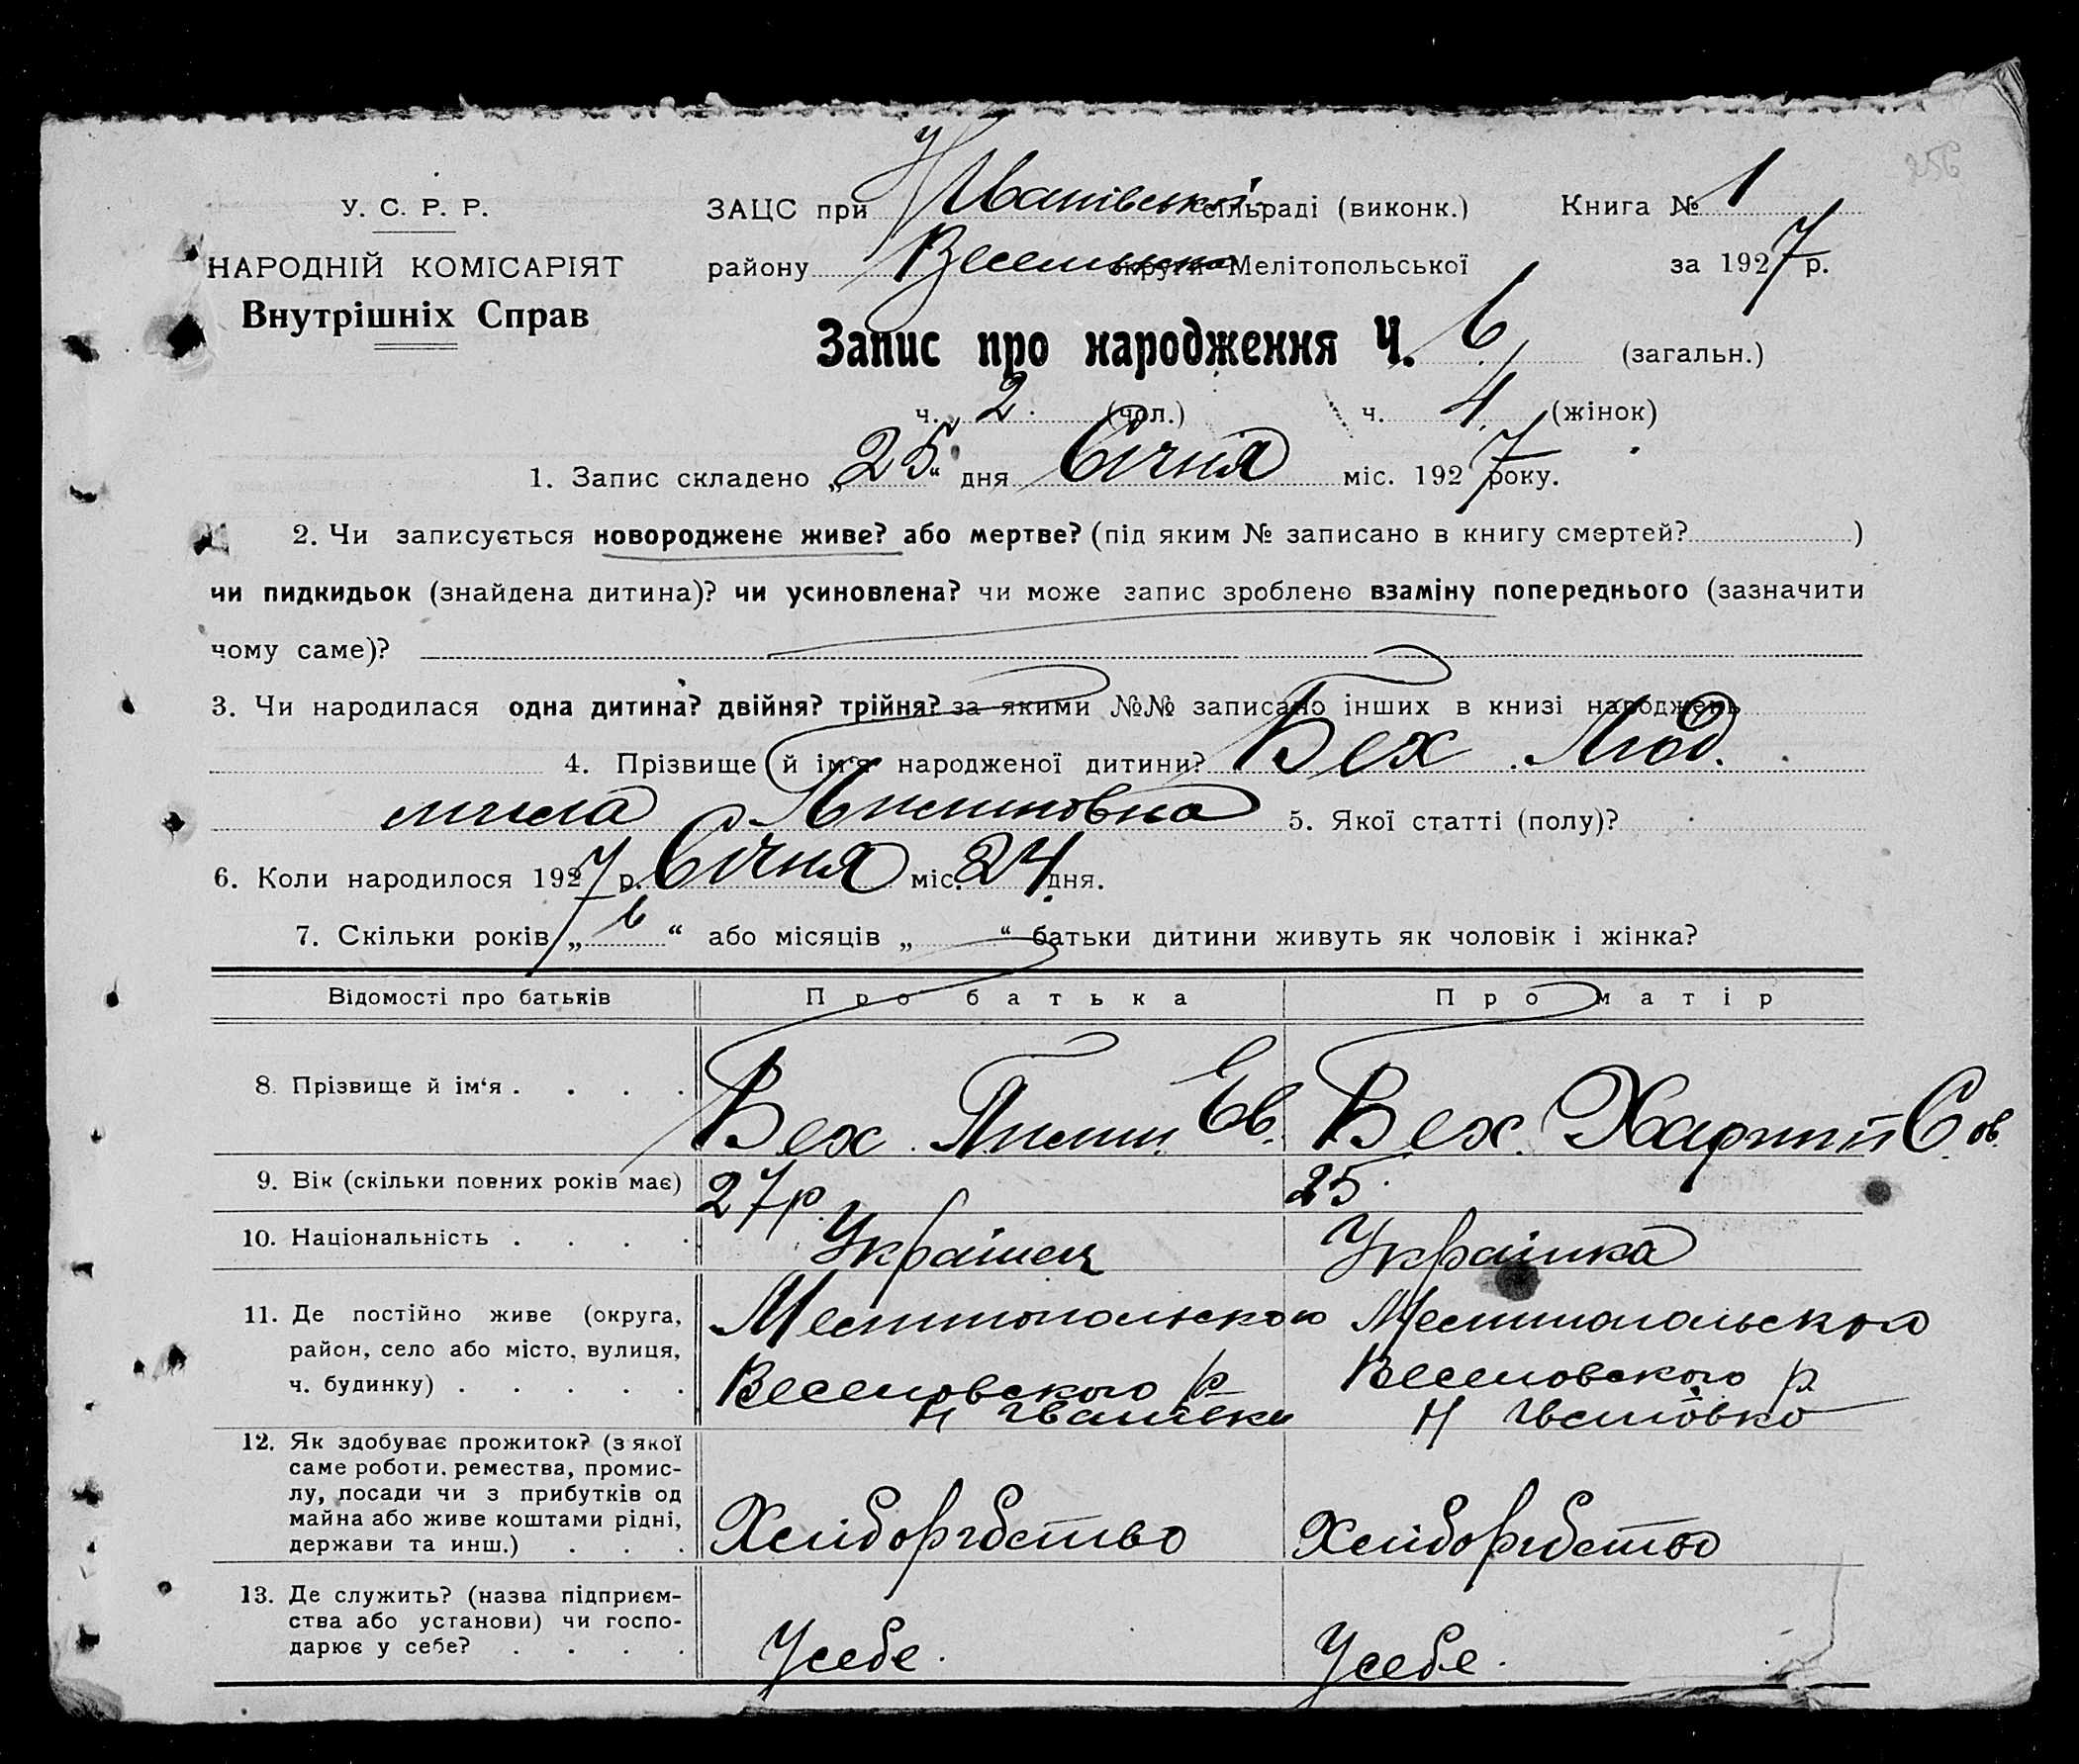 У. С. Р. Р.
НАРОДНІЙ КОМІСАРІЯТ
Внутрішніх Справ
ЗАЦС при Н Іванівській сільраді (виконк.) Книга № 1
району округи Мелітопольської за 1927 р.
Запис про народження Ч. 6 (загальн.)
ч. 2 (чол.) ч. 4 (жінок)
1. Запис складено „25“ дня Січня міс. 1927 року.
2. Чи записується новороджене живе? або мертве? (під яким № записано в книгу смертей? )
чи пидкидьок (знайдена дитина)? чи усиновлена? чи може запис зроблено взаміну попереднього (зазначити
чому саме)?
3. Чи народилася одна дитина? двійня? трійня? за якими №№ записано інших в книзі народжень
4. Прізвище й ім‘я народженої дитини? Бех Люд.
мила 5. Якої статті (полу)?
6. Коли народилося 1927 р. Січня міс. 24 дня.
7. Скільки років „6“ або місяців „ “ батьки дитини живуть як чоловік і жінка?
Відомості про батьків Про батька Про матір
8. Прізвище й ім‘я . . . . Бех Пилип Ев. Бех
9. Вік (скільки повних років має) 27 р. 25
10. Національність . . . . Українец Українка
11. Де постійно живе (округа, Мелитопольского Мелитопольского
район, село або місто, вулиця, Веселовского р Веселовского р
ч. будинку) . . . . . Н Іванівки Н Івановко
12. Як здобуває прожиток? (з якої
саме роботи, ремества, промис-
лу, посади чи з прибутків од
майна або живе коштами рідні, Хліборобство Хліборобство
держави та инш.) . . .
13. Де служить? (назва підприєм-
ства або установи) чи госпо-
дарює у себе? . . . . У себе. У себе.